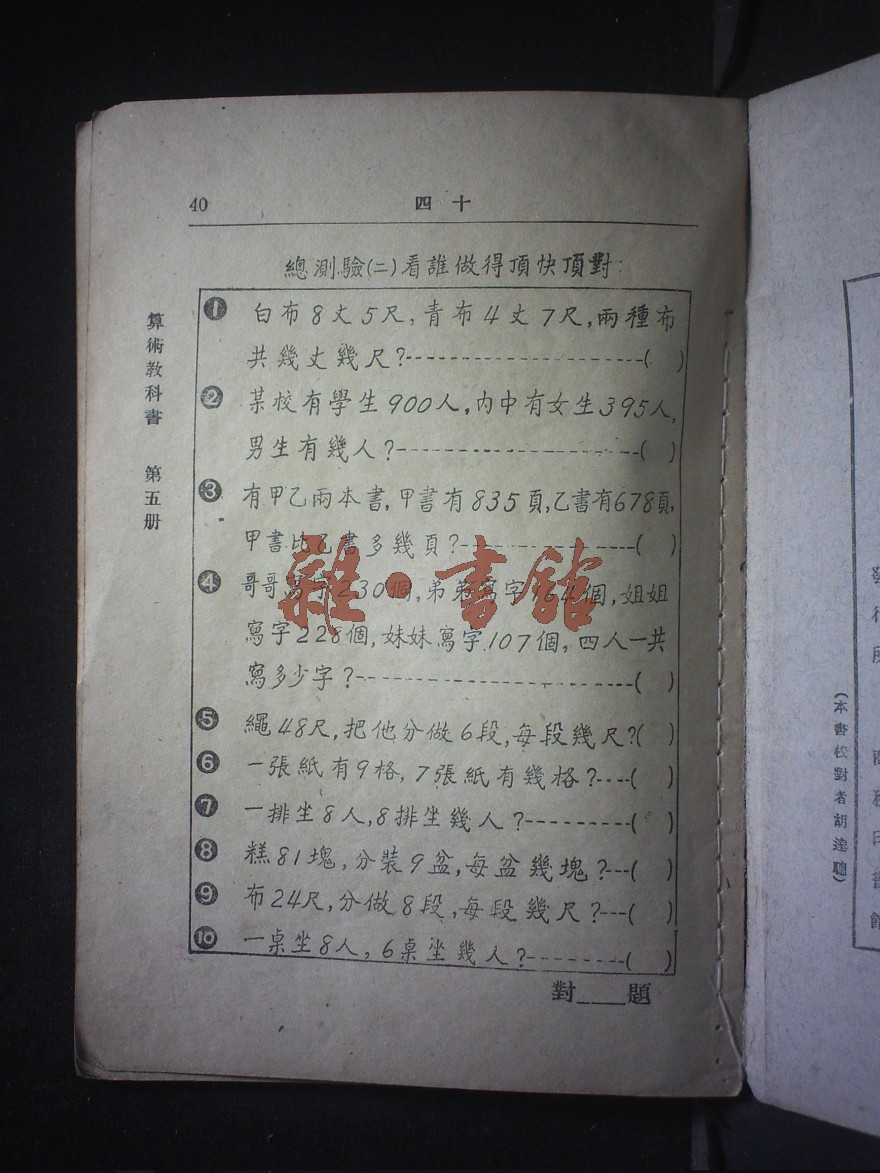 40
四十
總測驗(二)看誰做得頂快頂對:
❶ 白布8丈5尺,青布4丈7尺,兩種布
共幾丈幾尺?( )
❷ 某校有學生900人,內中有女生395人,
男生有幾人?( )
❸ 有甲乙兩本書,甲書有835頁,乙書有678頁,
甲書比乙書多幾頁?( )
❹ 哥哥寫字230個,弟弟寫字 個,姐姐
寫字228個,妹妹寫字107個,四人一共
寫多少字?( )
❺ 繩48尺,把他分做6段,每段幾尺?( )
❻ 一張紙有9格,7張紙有幾格?( )
❼ 一排坐8人,8排坐幾人?( )
❽ 糕81塊,分裝9盆,每盆幾塊?( )
❾ 布24尺,分做8段,每段幾尺?( )
❿ 一桌坐8人,6桌坐幾人?( )
對___題
算術教科書 第五册
雜·書館
(本書校對者胡達聰)
發行所 商務印書館